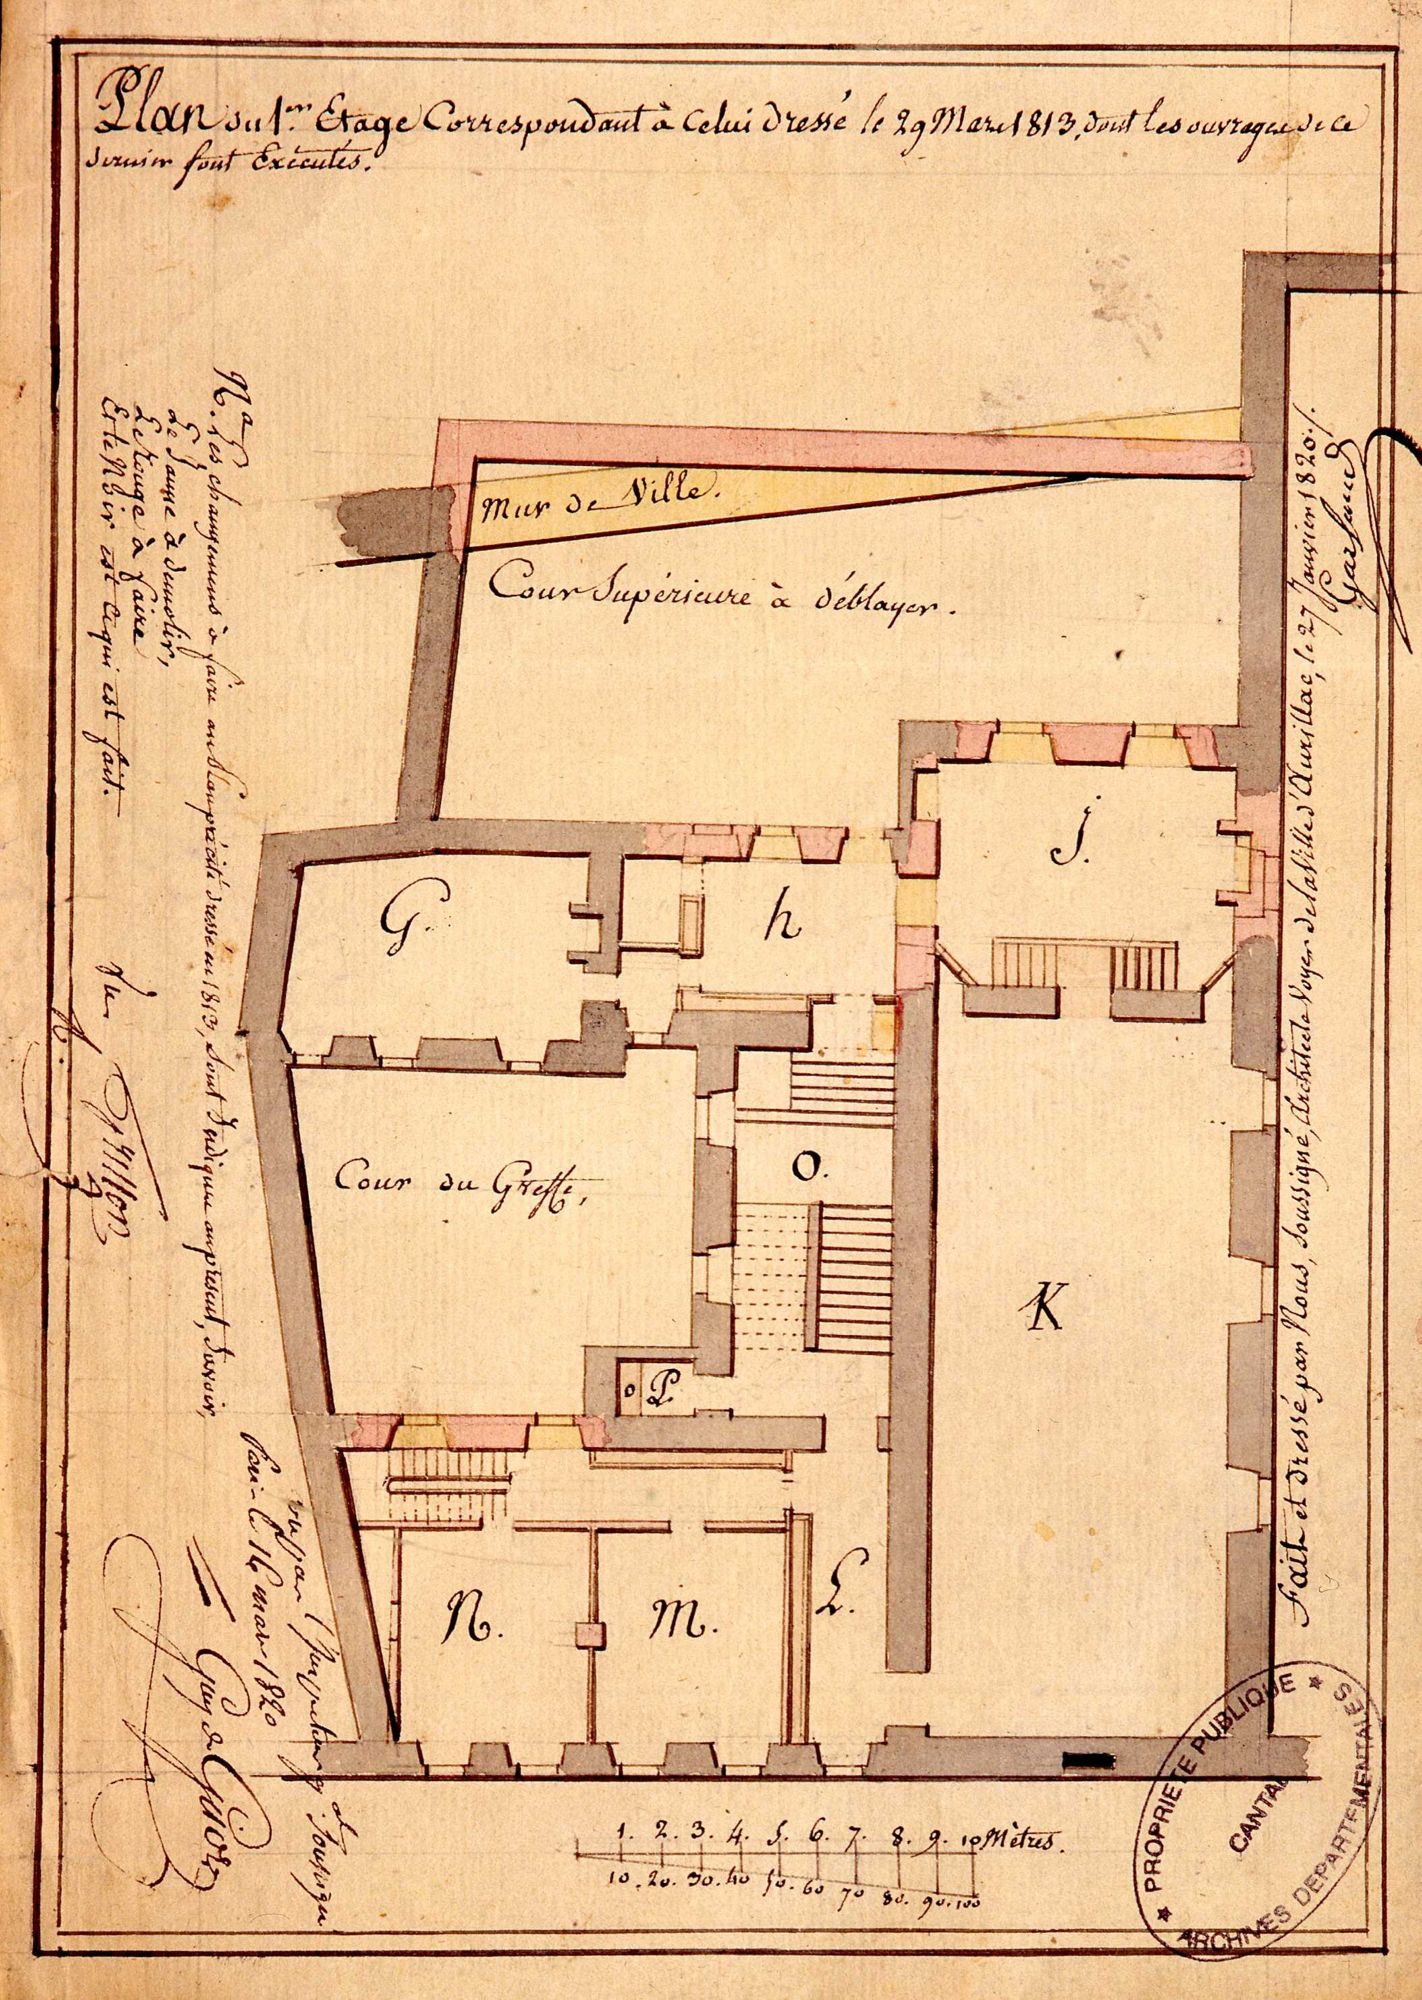 Plan du 1er. Etage Correspondant à celui dressé le 29 Mars 1813, dont les ouvrages de ce
dernier sont Exécutés.
Mur de Ville.
Cour Supérieure à déblayer.
J.
G.
h
Cour du Greffe,
O.
K
o
P
N.
M.
L.
1. 2. 3. 4. 5. 6. 7. 8. 9. 10 Mètres.
10. 20. 30. 40 50. 60 70 80. 90. 100
Na
Les changemens à faire au Plan précité dressé en 1813, sont Indiqués au présent, Savoir,
Le Jaune à démolir,
Le Rouge à faire
Et le Noir est ce qui est fait.
Vu par l'Inspecteur
Soussigné
Paris le 16 mars 1820
Fait et dressé par Nous, Soussigné, Architecte Voyer de la Ville d'Aurillac, le 27 Janvier 1820./.
PROPRIETE PUBLIQUE
CANTAL
ARCHIVES DEPARTEMENTALES